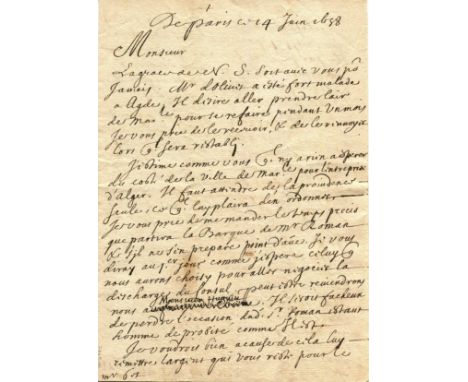 De Paris ce 14 Juin 1658
Monsieur
La grace de N. S. soit avec vous po^r
Jamais. M^r d'Oliuet a esté fort malade
a Agde, Il desire aller prendre lair
de Mar^le pour se refaire pendant un mois
Je vous prie de le recevoir, & de le renuoyer
lors q^l sera restabli.
J'estime comme vous q^l ny a rien a esperer
du costé de la Ville de Mar^le pour l'entreprise
d'Alger. Il faut attendre de la prouidence
seule, ce q^l luy plaira d'en ordonner.
Je vous prie de me mander le temps precis
que partira la Barque de M^r Roman
& s'il ne s'en prepare point d'autre. Je vous
diray au p^er jour comme j'espere celuy q
nous aurons choisy pour aller negocier la
descharge du Consul, peut estre reuendrons
nous a Monsieur Huguier. Il seroit facheux
de perdre l'occasion dud. S^r Roman estant
homme de probité comme Il est.
Je voudrois bien a cause de cela luy
remettre l'argent qui vous reste pour le